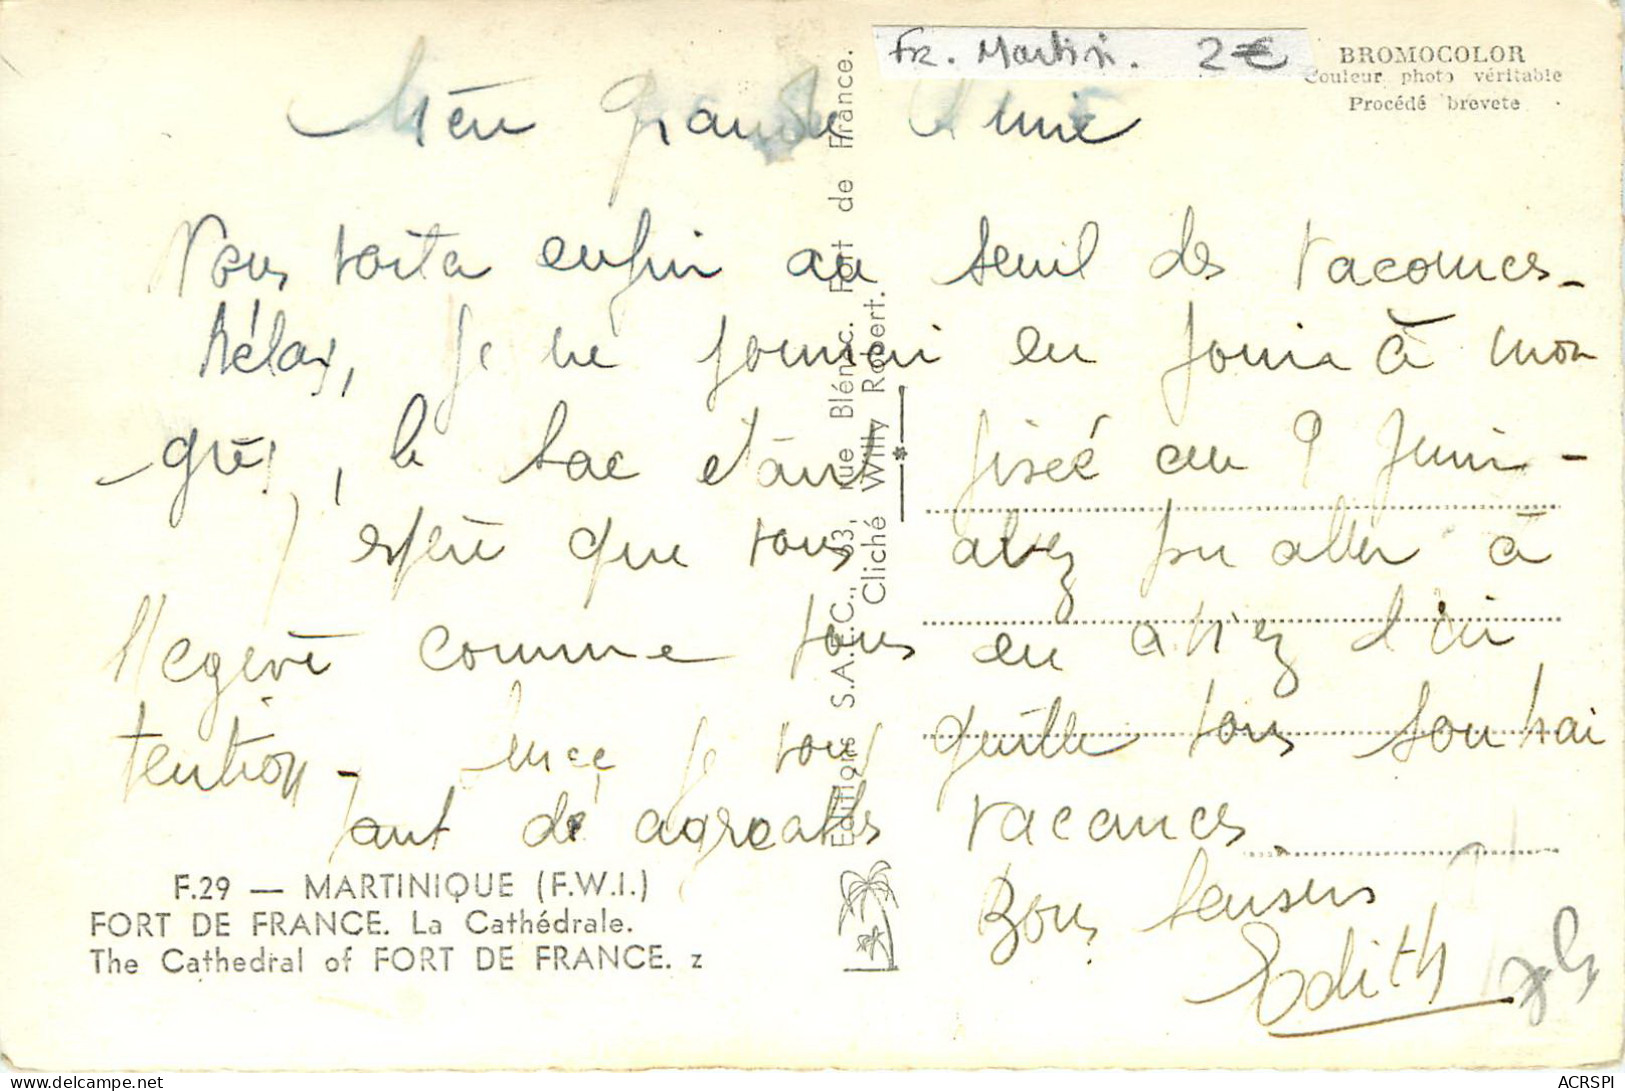 Fr. Martini. 2€
BROMOCOLOR
Couleur photo véritable
Procédé breveté
grande Amie
Vous voita enfin au seuil des vacances -
hélas, je ne pourrai en jouir à mon
gré, le bac étant fixé au 9 Juin -
espère que vous avez pu aller à
Megève comme vous en aviez l'in
tention - je vous quitte vous souhai
tant de agréables vacances
Bons baisers
Edith
Editions S.A.E.C., 33, Rue Blénac. Fort de France.
Cliché Willy Robert.
F.29 — MARTINIQUE (F.W.I.)
FORT DE FRANCE. La Cathédrale.
The Cathedral of FORT DE FRANCE. z
ACRSPI